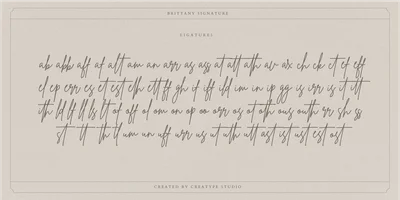 BRITTANY SIGNATURE
LIGATURES
ab abb aff af alt am an arr as ass at att ath av ax ch ck ct ef eff
el ep err es et est elh ett ff gh if iff ild im in ip gg is irr is it itt
ith ld lf ll ls lt of off ol om on op oo orr os ot oth ous outh rr sh ss
st tt th tl um un uff urr us ut uth utt ast ist ust est ost
CREATED BY CREATYPE STUDIO